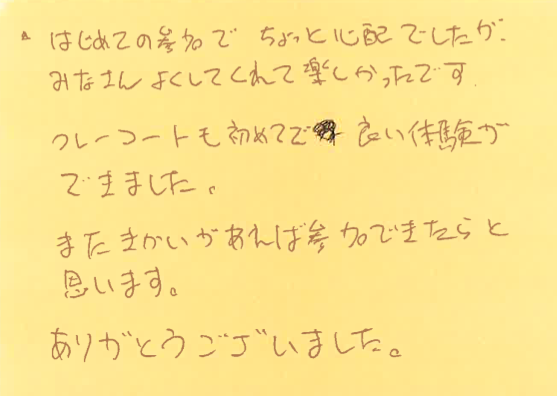 はじめての参加で ちょっと心配でしたが、
みなさんよくしてくれて楽しかったです
クレーコートも初めてで 良い体験が
できました。
またきかいがあれば参加できたらと
思います。
ありがとうございました。